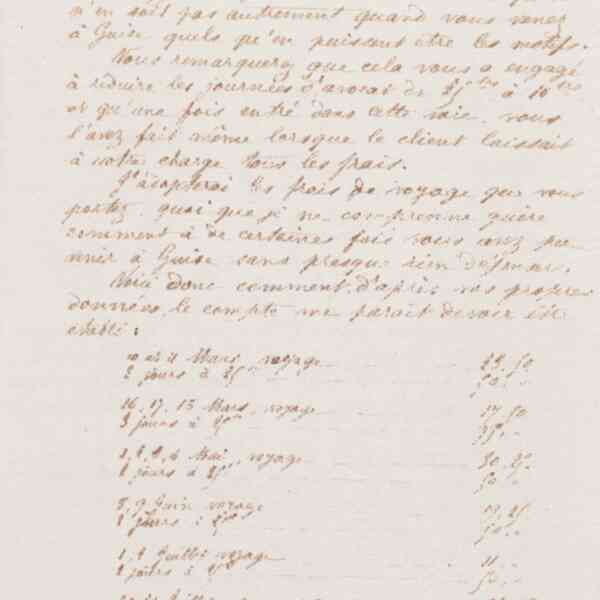 n'en soit pas autrement quand vous venez
à Guise quels qu'en puissent être les motifs.
Vous remarquerez que cela vous a engagé
à réduire les journées d'avocat de 25 frs à 10 frs
et qu'une fois entré dans cette voie, vous
l'avez fait même lorsque le client laissait
à votre charge tous les frais.
J'adopterai les frais de voyage que vous
portez, quoique je ne comprenne guère
comment à de certaines fois vous avez pu
venir à Guise sans presque rien dépenser.
Voici donc comment, d'après vos propres
données, le compte me paraît devoir être
établi :
10 et 11 Mars, voyage 29,50
2 jours à 25 50 "
16, 17, 18 Mars, voyage 50
3 jours à 25 75 "
Mai, voyage 30,25
jours à 25 50 "
8, 9 Juin voyage 25
2 jours à 50 "
1, 2 Juillet voyage 11 "
2 jours à 50 "